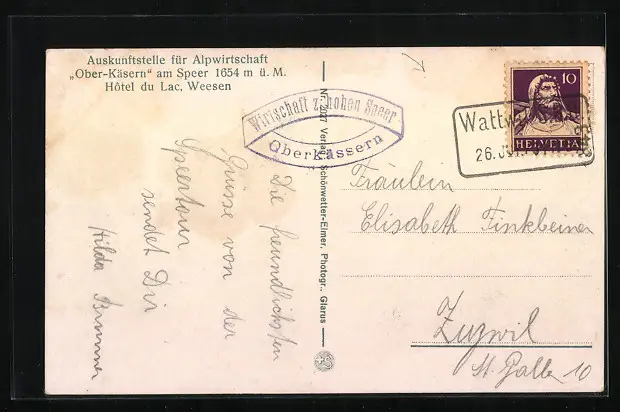 Auskunftstelle für Alpwirtschaft
„Ober-Käsern" am Speer 1654 m ü. M.
Hôtel du Lac, Weesen
Wirtschaft z. hohen Speer
Oberkässern
Die freundlichsten
Grüsse von der
Speertour
sendet Dir
Hilda Brunner
Nr. 2027 Verlag Schönwetter-Elmer, Photogr., Glarus
10
HELVETIA
Wattw
26.
Fräulein
Elisabeth Finkbeiner
Zuzwil
St. Galle 10